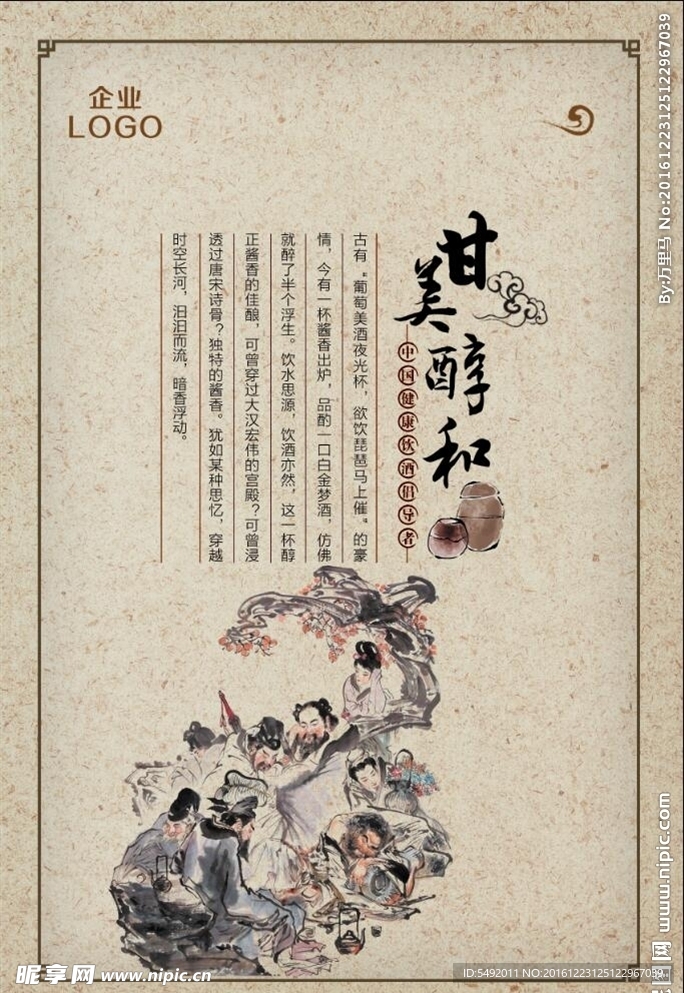 企业
LOGO
甘美醇和
中国健康饮酒倡导者
古有“葡萄美酒夜光杯，欲饮琵琶马上催”的豪
情，今有一杯酱香出炉，品酌一口白金梦酒，仿佛
就醉了半个浮生。饮水思源，饮酒亦然，这一杯醇
正酱香的佳酿，可曾穿过大汉宏伟的宫殿？可曾浸
透过唐宋诗骨？独特的酱香。犹如某种思忆，穿越
时空长河，汩汩而流，暗香浮动。
By:万里马 No:20161223125122967039
昵享网 www.nipic.cn
www.nipic.com
ID:5492011 NO:20161223125122967039